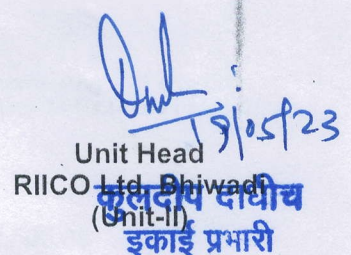 19/05/23
Unit Head
RIICO Ltd. Bhiwadi
(Unit-II)
कुलदीप दाधीच
इकाई प्रभारी